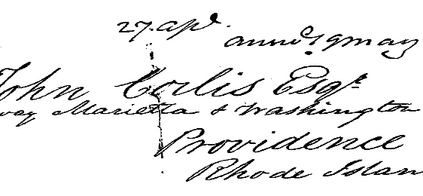 27. apl.
annd. 19 may
John Corlis Esqr.
way Marietta & Washington
Providence
Rhode Islan